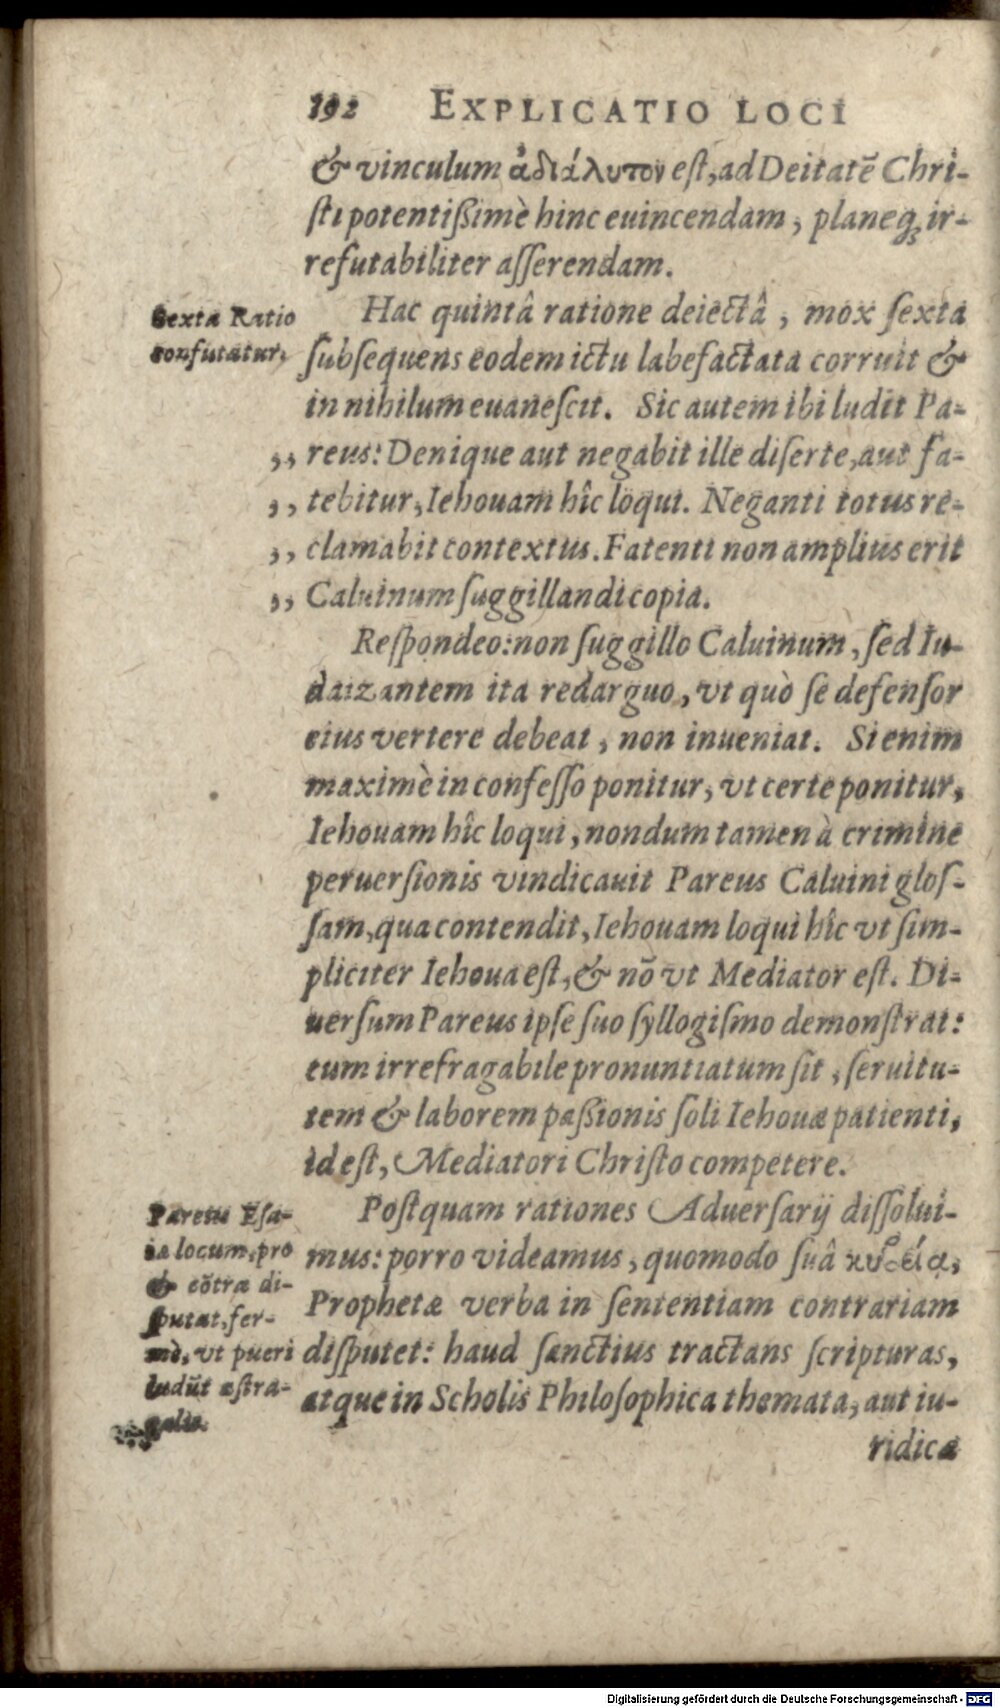 192 EXPLICATIO LOCI
& vinculum ἀδιάλυτον eſt, ad Deitatẽ Chri-
ſti potentißimè hinc euincendam, planeq́; ir-
refutabiliter aſſerendam.
Sexta Ratio
confutatur.
Hac quintâ ratione deiectâ, mox ſexta
ſubſequens eodem ictu labefactata corruit &
in nihilum euaneſcit. Sic autem ibi ludit Pa-
,, reus: Denique aut negabit ille diſerte, aut fa-
,, tebitur, Iehouam hîc loqui. Neganti totus re-
,, clamabit contextus. Fatenti non amplius erit
,, Caluinum ſuggillandi copia.
Reſpondeo: non ſuggillo Caluinum, ſed Iu-
daizantem ita redarguo, vt quò ſe defenſor
eius vertere debeat, non inueniat. Si enim
maximè in confeſſo ponitur, vt certe ponitur,
Iehouam hîc loqui, nondum tamen à crimine
peruerſionis vindicauit Pareus Caluini gloſ-
ſam, qua contendit, Iehouam loqui hîc vt ſim-
pliciter Iehoua eſt, & nō vt Mediator eſt. Di-
uerſum Pareus ipſe ſuo ſyllogiſmo demonſtrat:
cum irrefragabile pronuntiatum ſit, ſeruitu-
tem & laborem paßionis ſoli Iehouæ patienti,
id eſt, Mediatori Chriſto competere.
Pareus Eſa-
iæ locum, pro
& cōtra di-
ſputat, fer-
mè, vt pueri
ludūt aſtra-
galis.
Poſtquam rationes Aduerſarij diſſolui-
mus: porro videamus, quomodo ſuâ κυβείᾳ,
Prophetæ verba in ſententiam contrariam
diſputet: haud ſanctius tractans ſcripturas,
atque in Scholis Philoſophica themata, aut iu-
ridica
Digitalisierung gefördert durch die Deutsche Forschungsgemeinschaft - DFG